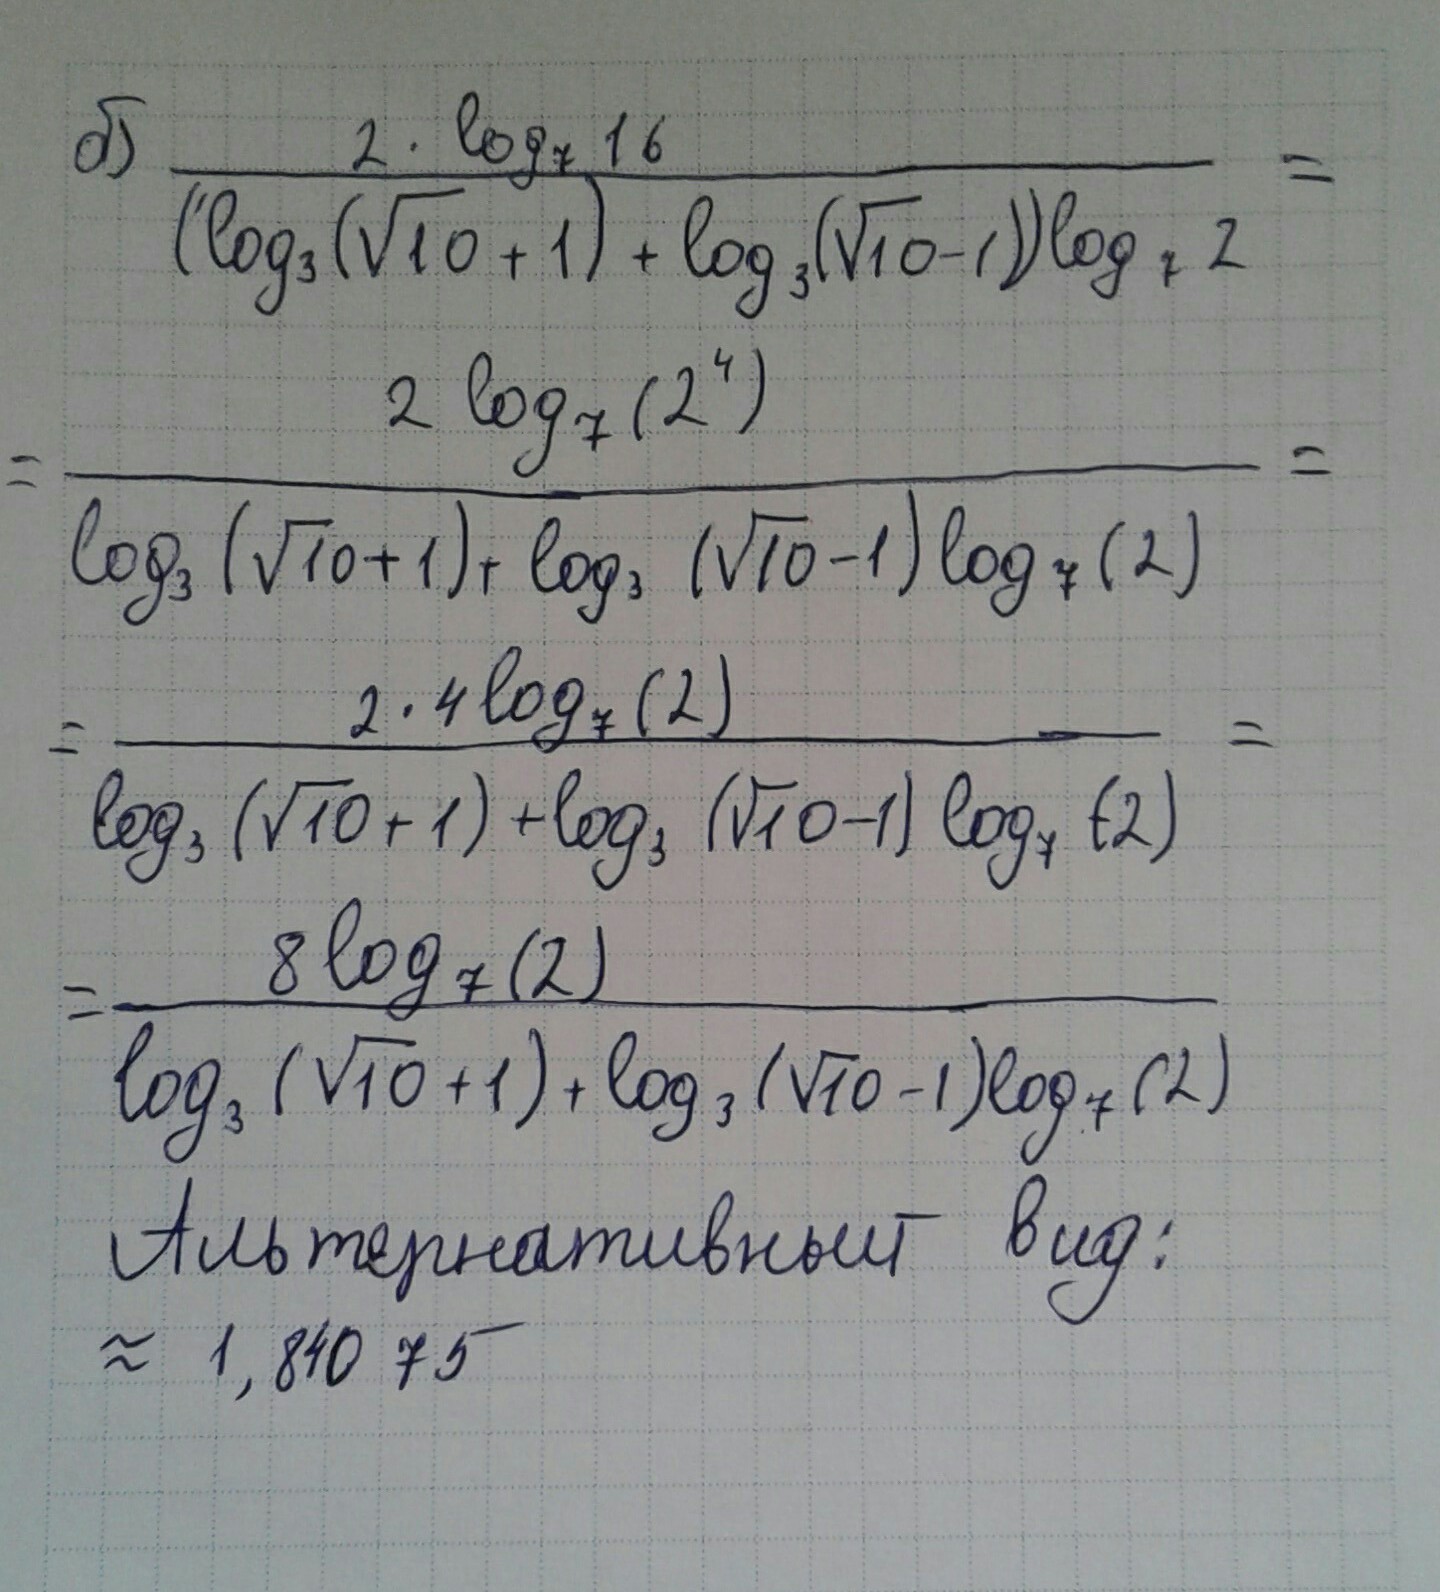 б) 2 · log₇ 16 =
(log₃(√10 + 1) + log₃(√10-1))log₇ 2
2 log₇ (2⁴)
= =
log₃ (√10+1) + log₃ (√10-1) log₇ (2)
2 · 4 log₇ (2)
= =
log₃ (√10+1) + log₃ (√10-1) log₇ (2)
8 log₇ (2)
=
log₃ (√10+1) + log₃ (√10-1) log₇ (2)
Альтернативный вид:
≈ 1,840 75